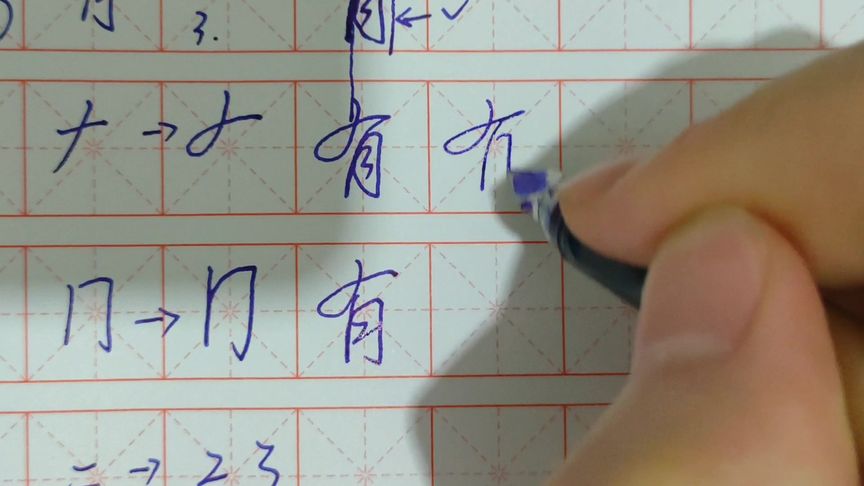 3.
ナ → ナ 有
冂 → 冂 有
二 → 2 3